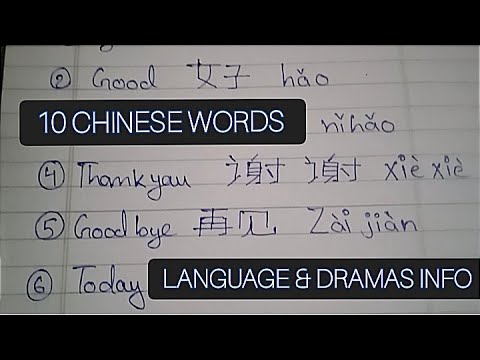 ② Good 女子 hǎo
10 CHINESE WORDS nǐhǎo
④ Thankyou 谢 谢 xiè xiè
⑤ Goodbye 再见 Zài jiàn
⑥ Today LANGUAGE & DRAMAS INFO